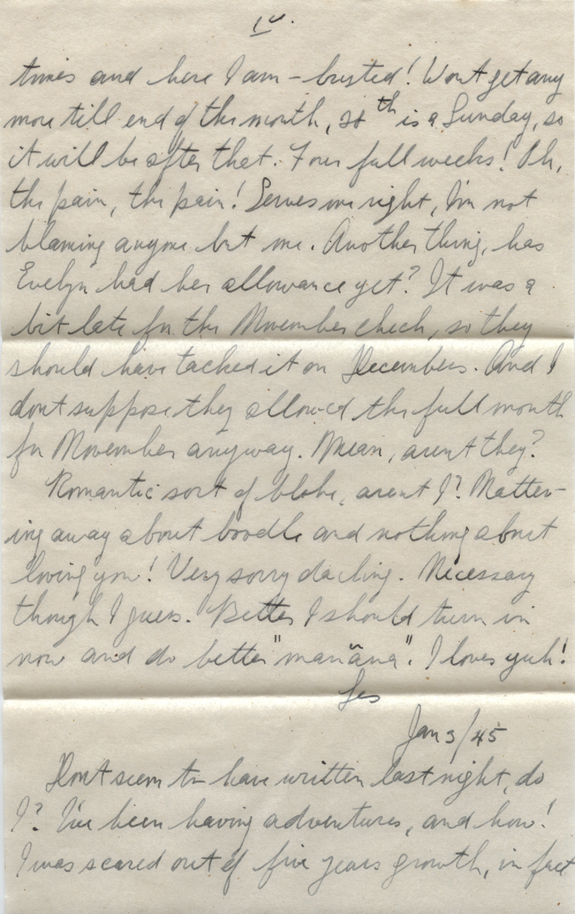 times and here I am - busted! Wont get any
more till end of the month, 28th is a Sunday, so
it will be after that. Four full weeks! Oh,
the pain, the pain! Serves me right, I'm not
blaming anyone but me. Another thing, has
Evelyn had her allowance yet? It was a
bit late for the November check, so they
should have tacked it on Decembers. And I
dont suppose they allowed the full month
for November anyway. Mean, arent they?
Romantic sort of bloke, arent I? Natter-
ing away about boodle and nothing about
loving you! Very sorry darling. Necessary
though I guess. Better I should turn in
now and do better "mañana". I loves yuh!
Les
Jan 3/45
Dont seem to have written last night, do
I? I've been having adventures, and how!
I was scared out of five years growth, in fact